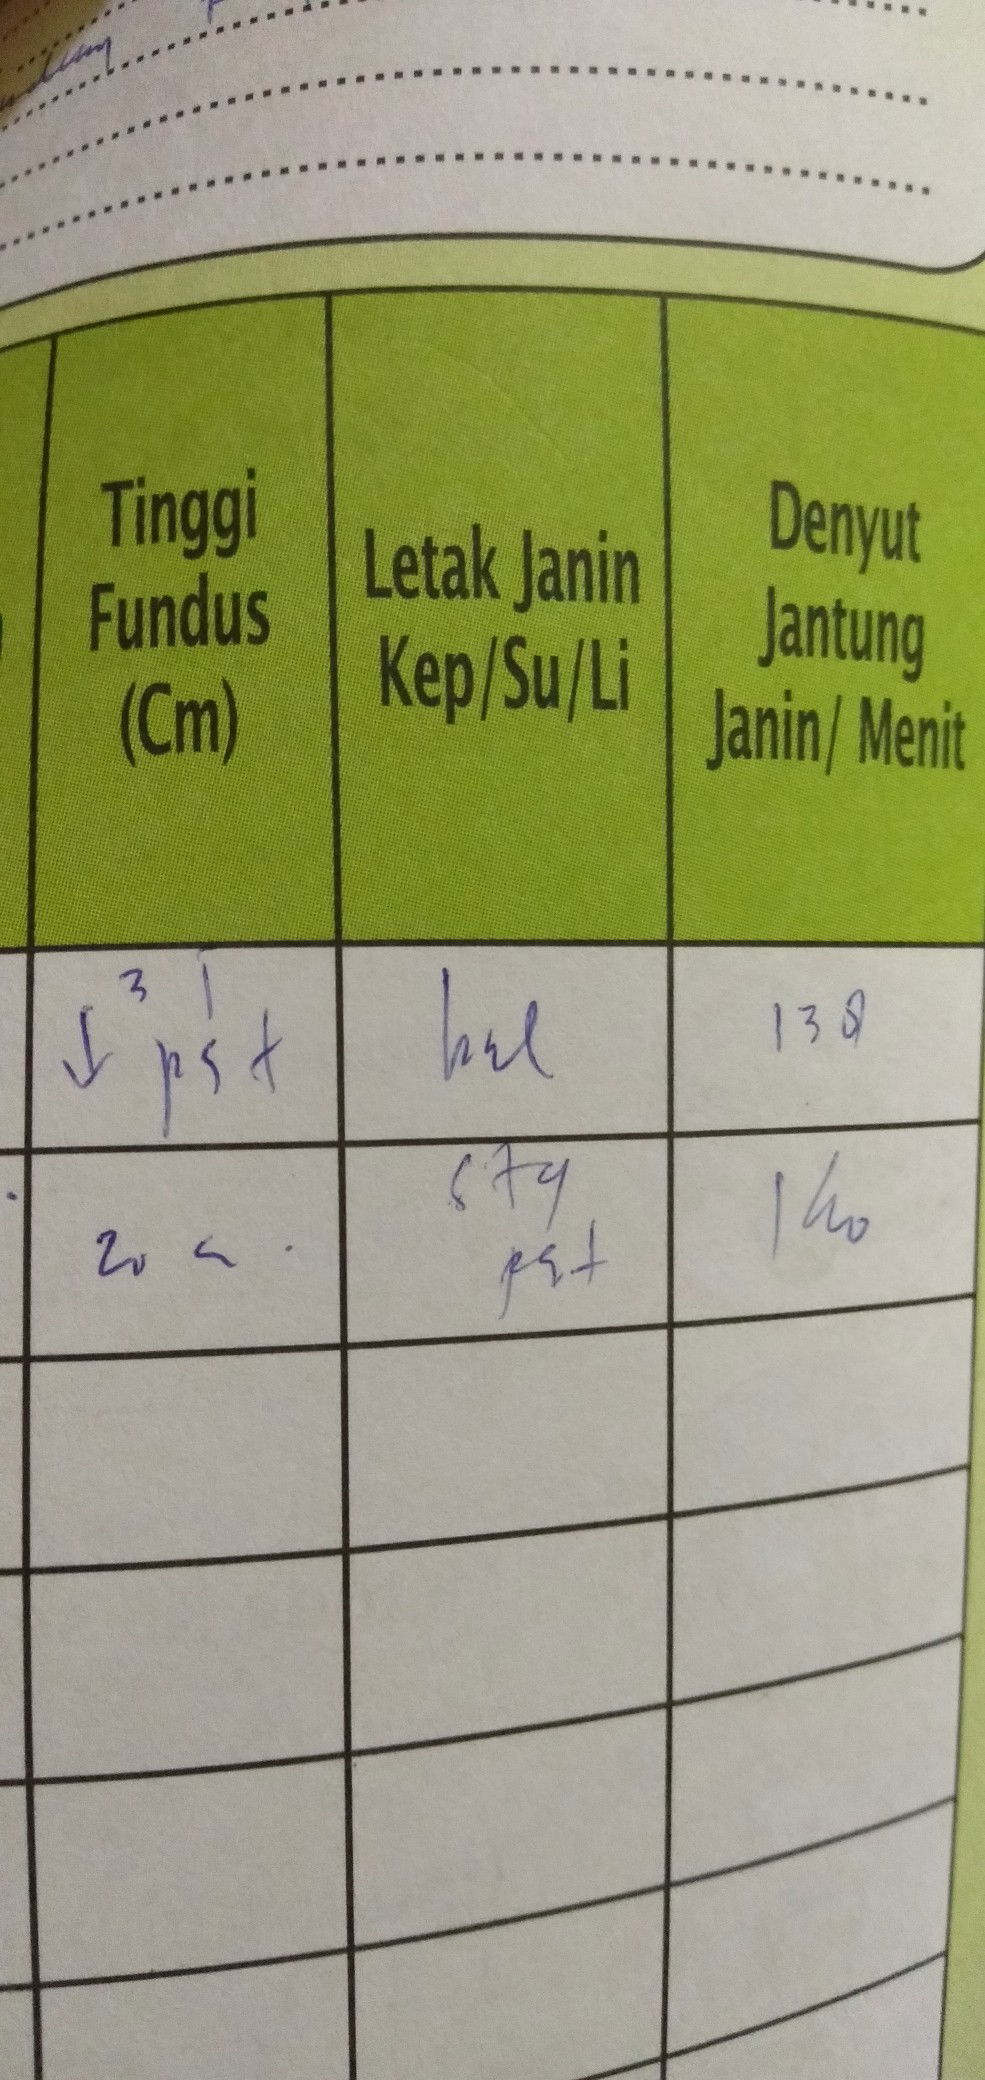 Tinggi
Fundus
(Cm)
Letak Janin
Kep/Su/Li
Denyut
Jantung
Janin/ Menit
3 J
↓ pst
bal
138
20 c
pst
140